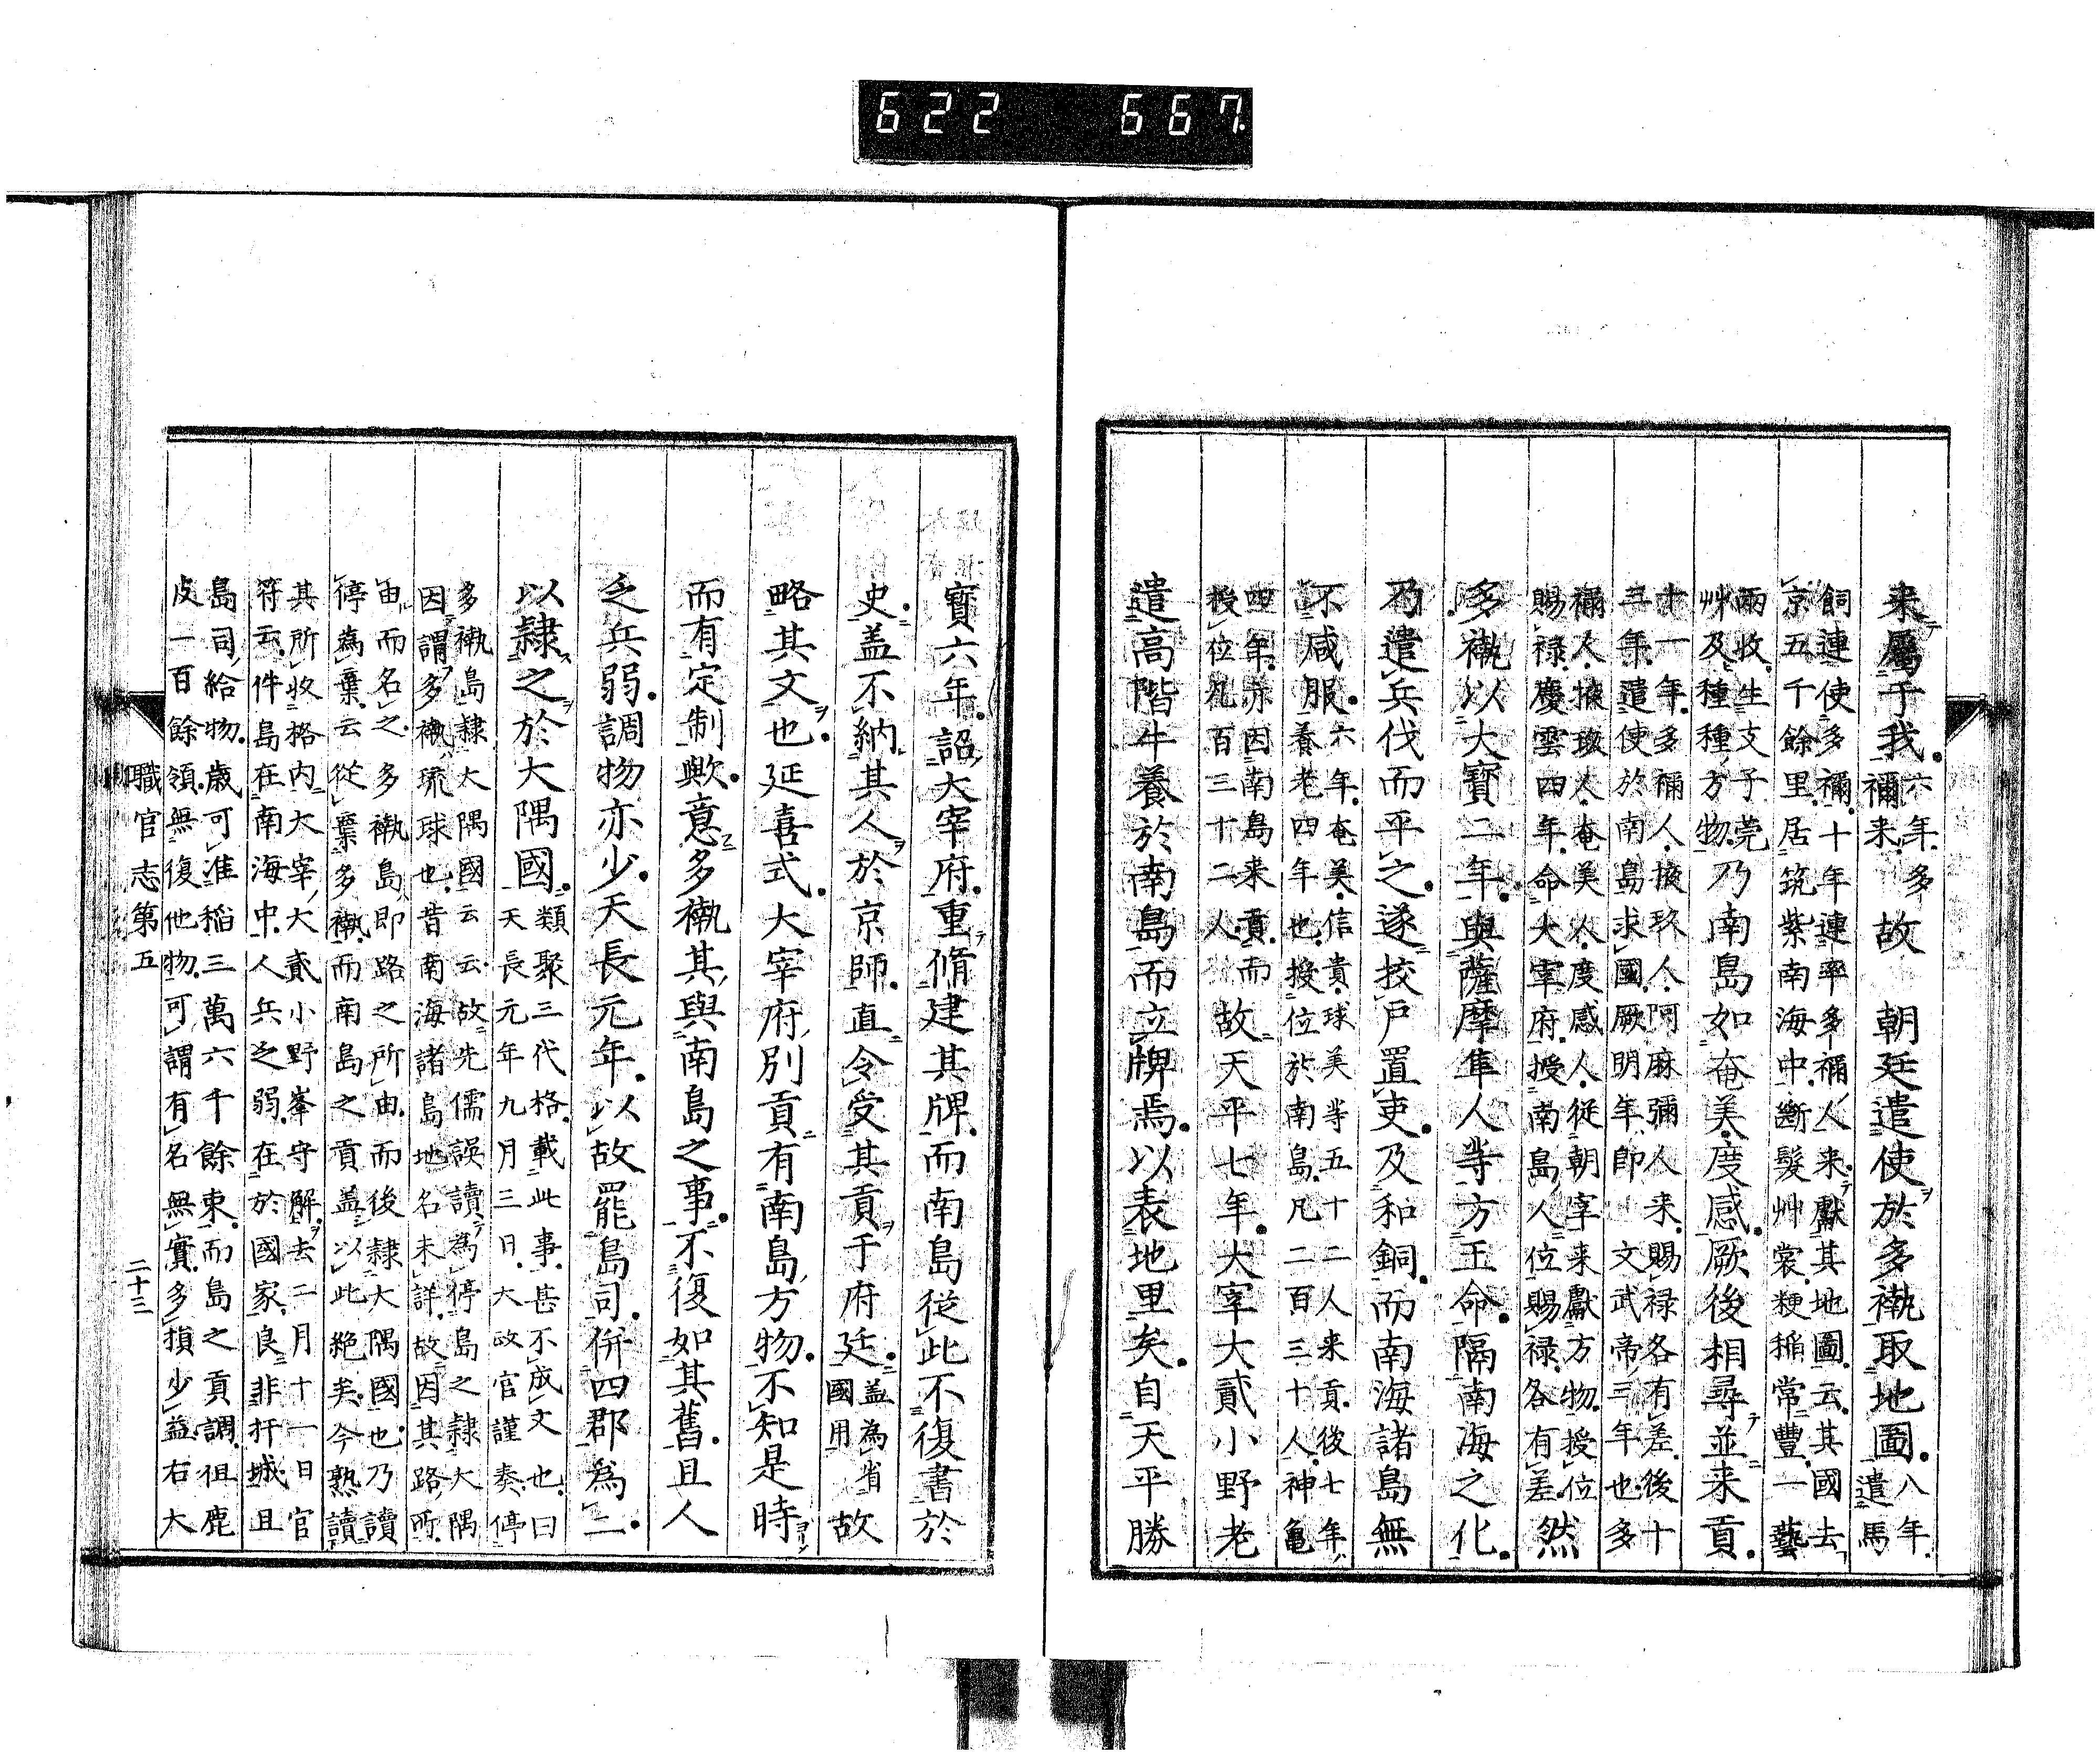 622 667
来屬于我六年多禰来故 朝廷遣使於多褹取地圖八年遣馬
飼連使多禰十年連率多禰人来獻其地圖云其國去
京五千餘里居筑紫南海中断髮艸裳粳稲常豊一藝
兩收生支子莞
艸及種種方物乃南島如奄美度感厥後相尋並来貢
十一年多禰人掖玖人阿麻彌人来賜禄各有差後十
三年遣使於南島求國厥明年即文武帝三年也多
禰人掖玖人奄美人度感人従朝宰来獻方物授位
賜禄慶雲四年命大宰府授南島人位賜禄各有差然
多褹以大寶二年與薩摩隼人等方王命隔南海之化
乃遣兵伐而平之遂挍戸置吏及和銅而南海諸島無
不咸服六年奄美信貴球美等五十二人来貢後七年
養老四年也授位於南島凡二百三十人神亀
四年亦因南島来貢而
授位九百三十二人故天平七年大宰大貳小野老
遣高階牛養於南島而立牌焉以表地里矣自天平勝
寳六年詔大宰府重脩建其牌而南島従此不復書於
史盖不納其人於京師直令受其貢于府廷盖為省國用故
略其文也延喜式大宰府別貢有南島方物不知是時
而有定制歟意多褹其與南島之事不復如其舊且人
乏兵弱調物亦少天長元年以故罷島司併四郡為二
以隷之於大隅國類聚三代格載此事甚不成文也曰
天長元年九月三日大政官謹奏停
多褹島隷大隅國云云故先儒誤讀為停島之隷大隅
因謂多褹琉球也昔南海諸島地名未詳故因其路所
由而名之多褹島即路之所由而後隷大隅國也乃讀
停為棄云従棄多褹而南島之貢盖以此絶矣今熟讀
其所收格内大宰大貳小野峯守解去二月十一日官
符云件島在南海中人兵乏弱在於國家良非扞城且
島司給物歳可准稲三萬六千餘束而島之貢調徂鹿
皮一百餘領無復他物可謂有名無實多損少益右大
職官志第五
二十三